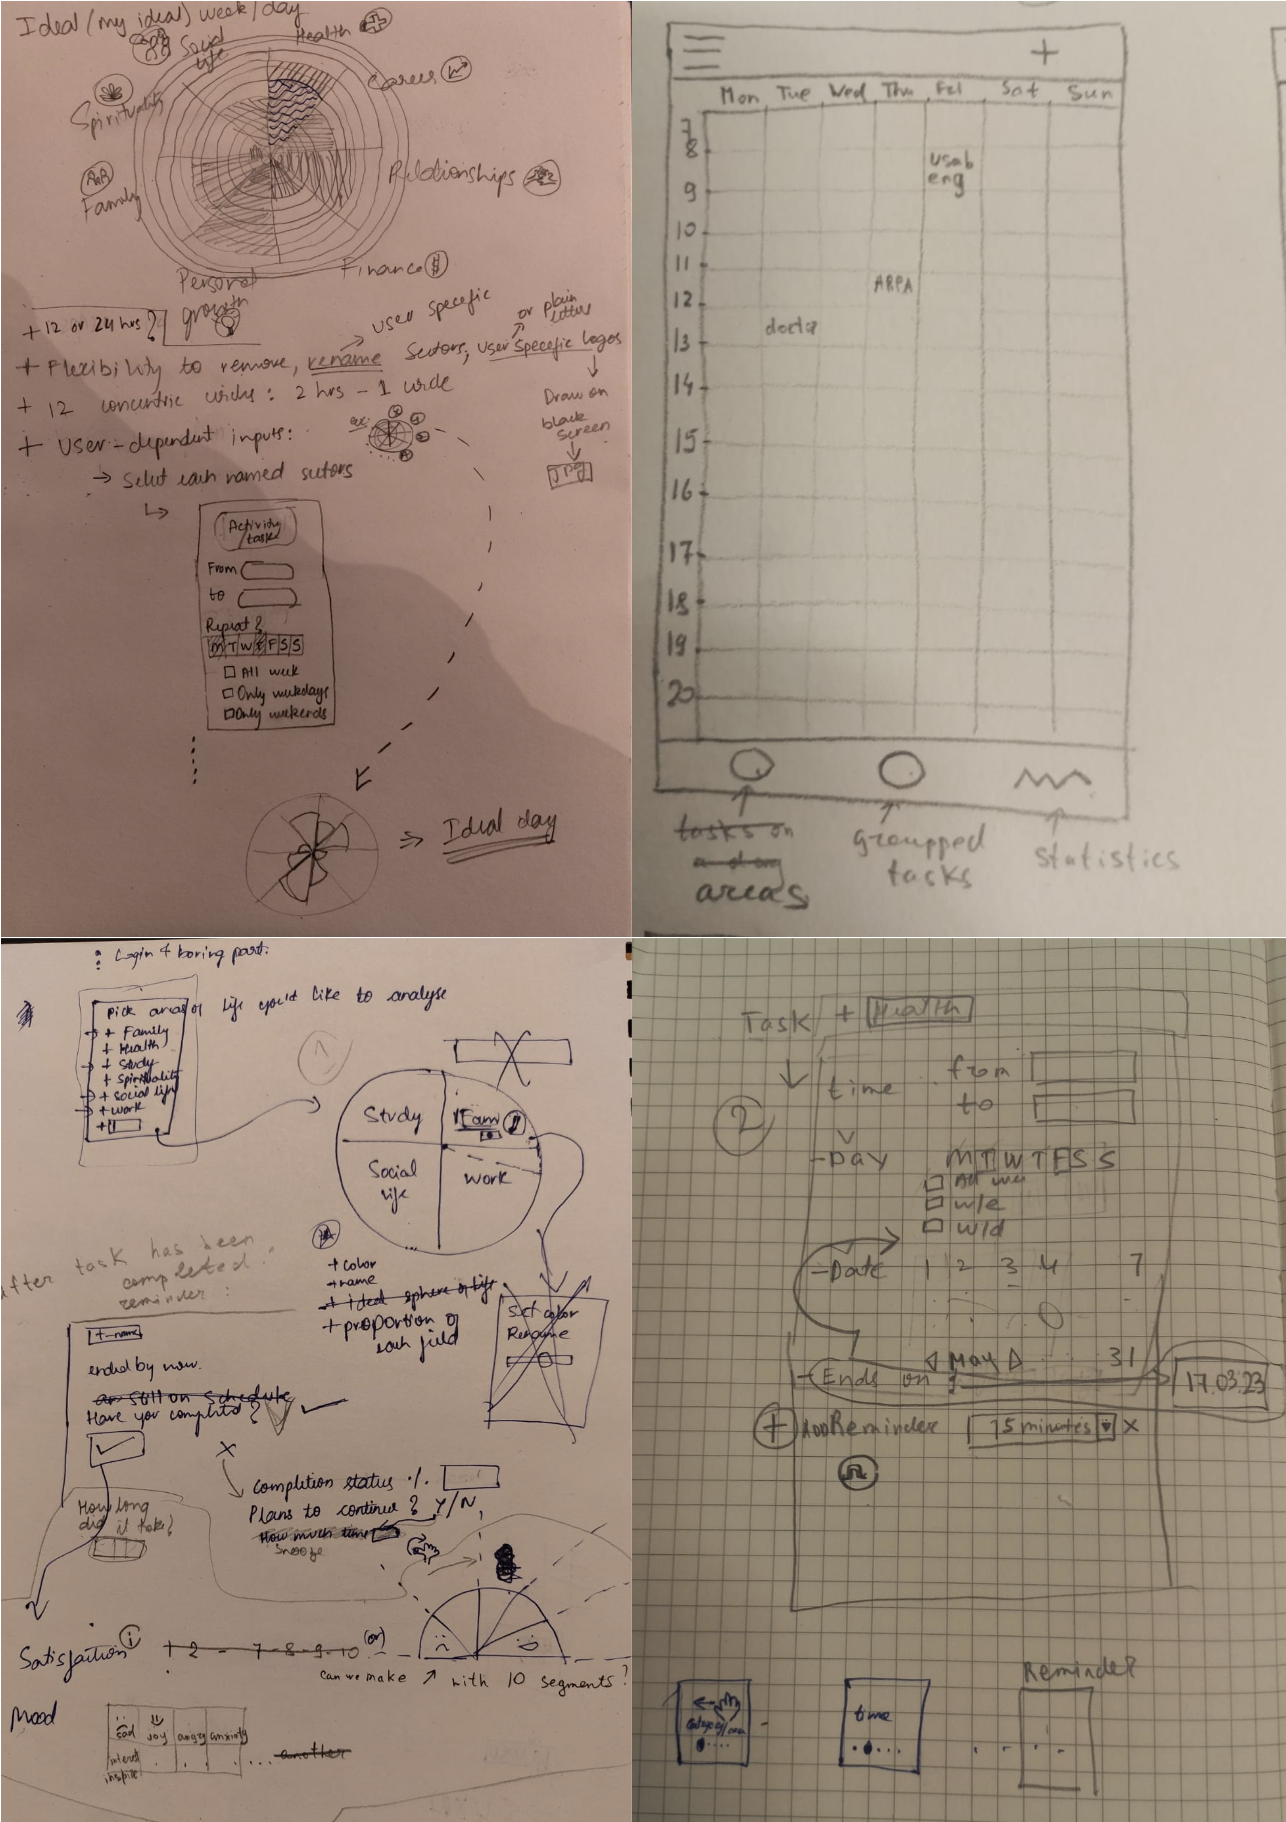 Ideal (my ideal) week/day
Social life
Health
Career
Spirituality
Relationships
Family
Finance $
Personal growth
+ 12 or 24 hrs?
user specific
or plain letters
+ Flexibility to remove, rename sectors, user specific logos
+ 12 concentric circles: 2 hrs - 1 circle
Draw on
black
screen
JPG
+ User-dependent inputs:
→ Select each named sectors
Activity/
task
From
to
Repeat?
M T W T F S S
All week
Only weekdays
Only weekends
⇒ Ideal day
+
Mon Tue Wed Thu Fri Sat Sun
7
8
usab
eng
9
10
11
ARPA
12
13
14
15
16
17
18
19
20
tasks on
areas
groupped
tasks
statistics
Login + boring part.
Pick areas of life you'd like to analyse
+ Family
+ Health
+ Study
+ Spirituality
+ Social life
+ Work
+
1
Study
Fam
Social
life
Work
+ color
+ name
+ ideal sphere of life
+ proportion of
each field
Set color
Rename
after task has been
completed.
reminder:
+ name
ended by now.
still on schedule
Have you completed?
How long
did it take?
X
Completion status %.
Plans to continue? Y/N
How much time
snooze
Satisfaction i
+ 2 - 7 - 8 - 9 - 10 (or)
can we make ↗ with 10 segments?
Mood
sad joy angry anxiety
... another
interest
inspire
Task + Health
2
time
from
to
- Day
M T W T F S S
All
w/e
w/d
- Date 1 2 3 4 7
◁ May ▷ 31
- Ends on
17.03.23
+ Add Reminder 15 minutes X
time
Reminder